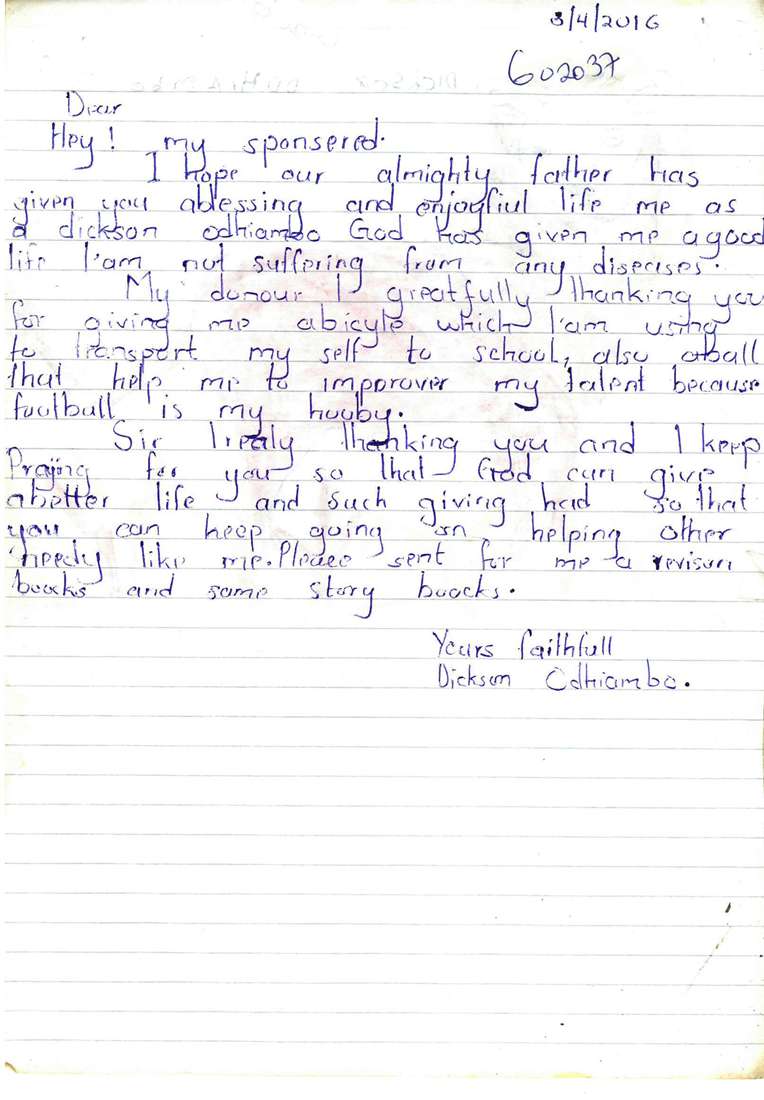 3/4/2016
602037
Dear
Hey! my sponsered.
I hope our almighty father has
given you ablessing and enjoyful life me as
a dickson odhiambo God has given me agood
life I'am not suffering from any diseases.
My donour I greatfully thanking you
for giving me abicyle which I'am using
to transport my self to school, also aball
that help me to improver my talent because
football is my hooby.
Sir Irealy thanking you and I keep
Praying for you so that God can give
abetter life and such giving had so that
you can keep going on helping other
needy like me. Please sent for me a revison
boocks and some story boocks.
Yours faithfull
Dickson Odhiambo.